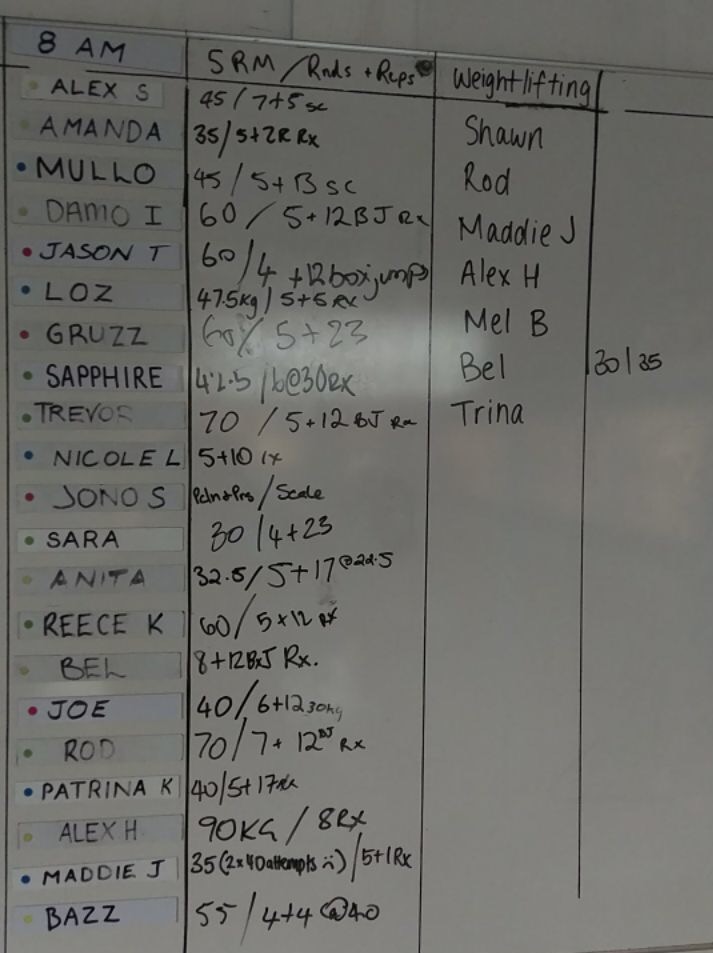 8 AM 5RM / Rnds + Reps Weightlifting
ALEX S 45 / 7+5 sc
AMANDA 35/5+2R Rx Shawn
MULLO 45 / 5+13 SC Rod
DAMO I 60 / 5+12BJ Rx Maddie J
JASON T 60/4 +12 box jumps Alex H
LOZ 47.5kg / 5+5 RX
GRUZZ 60/ 5+23 Mel B
SAPPHIRE 42.5 /6@30RX Bel 30/35
TREVOR 70 / 5+12 BJ Rx Trina
NICOLE L 5+10 rx
JONO S / Scale
SARA 30 /4+23
ANITA 32.5/5+17 @22.5
REECE K 60/ 5+12 RX
BEL 8+12BxJ Rx.
JOE 40/6+12 30kg
ROD 70/7+ 12 BJ Rx
PATRINA K 40/5+17 Rx
ALEX H 90KG / 8Rx
MADDIE J 35(2x40attempts :() /5+1Rx
BAZZ 55 / 4+4 @40